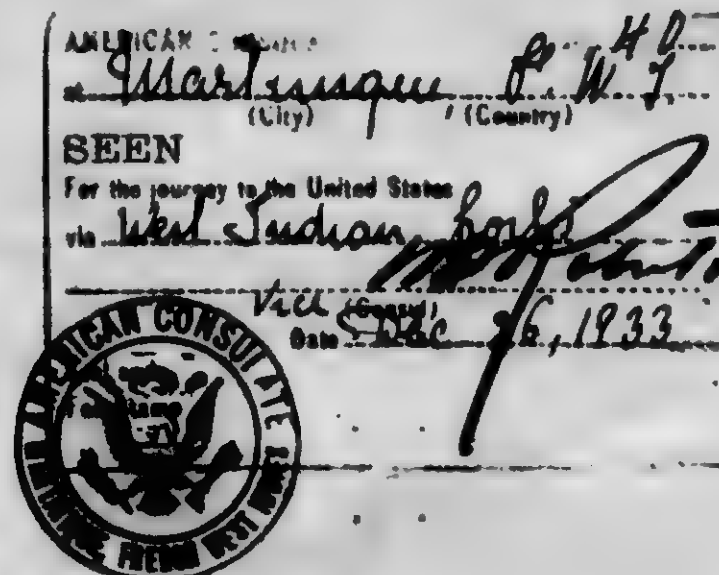 AMERICAN
at Martinique F. W. I.
(City) (Country)
SEEN
For the journey to the United States
via West Indian Ports
Vice (Consul)
Date Dec 26, 1933
AMERICAN CONSULATE
MARTINIQUE, FRENCH WEST INDIES